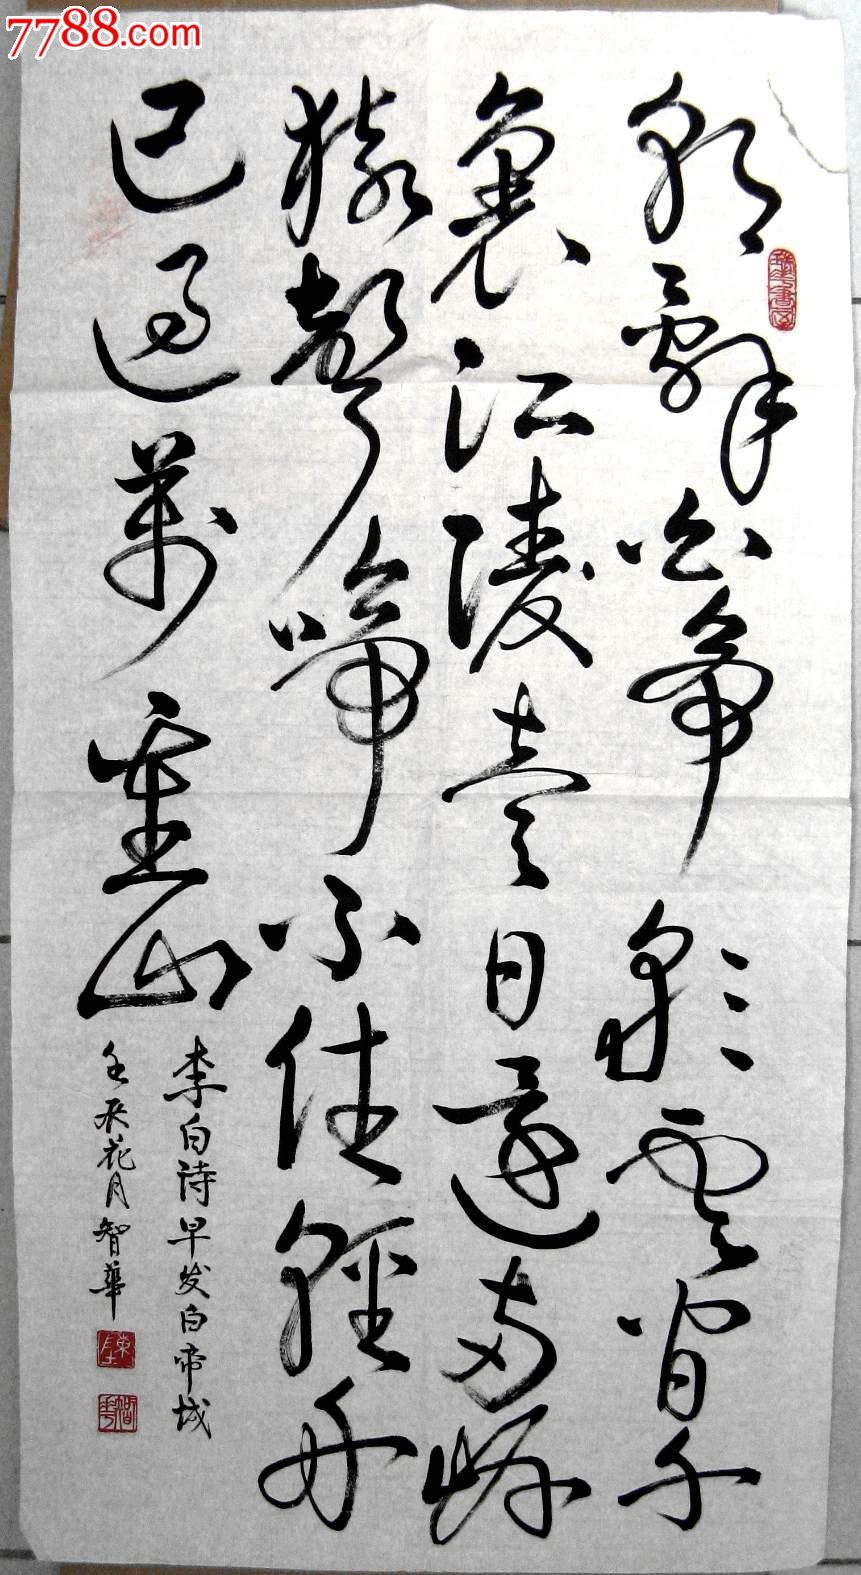 7788.com
朝辭白帝彩雲間千
裏江陵壹日還兩岸
猿聲啼不住輕舟
已過萬重山
李白诗早发白帝城
壬辰花月智華